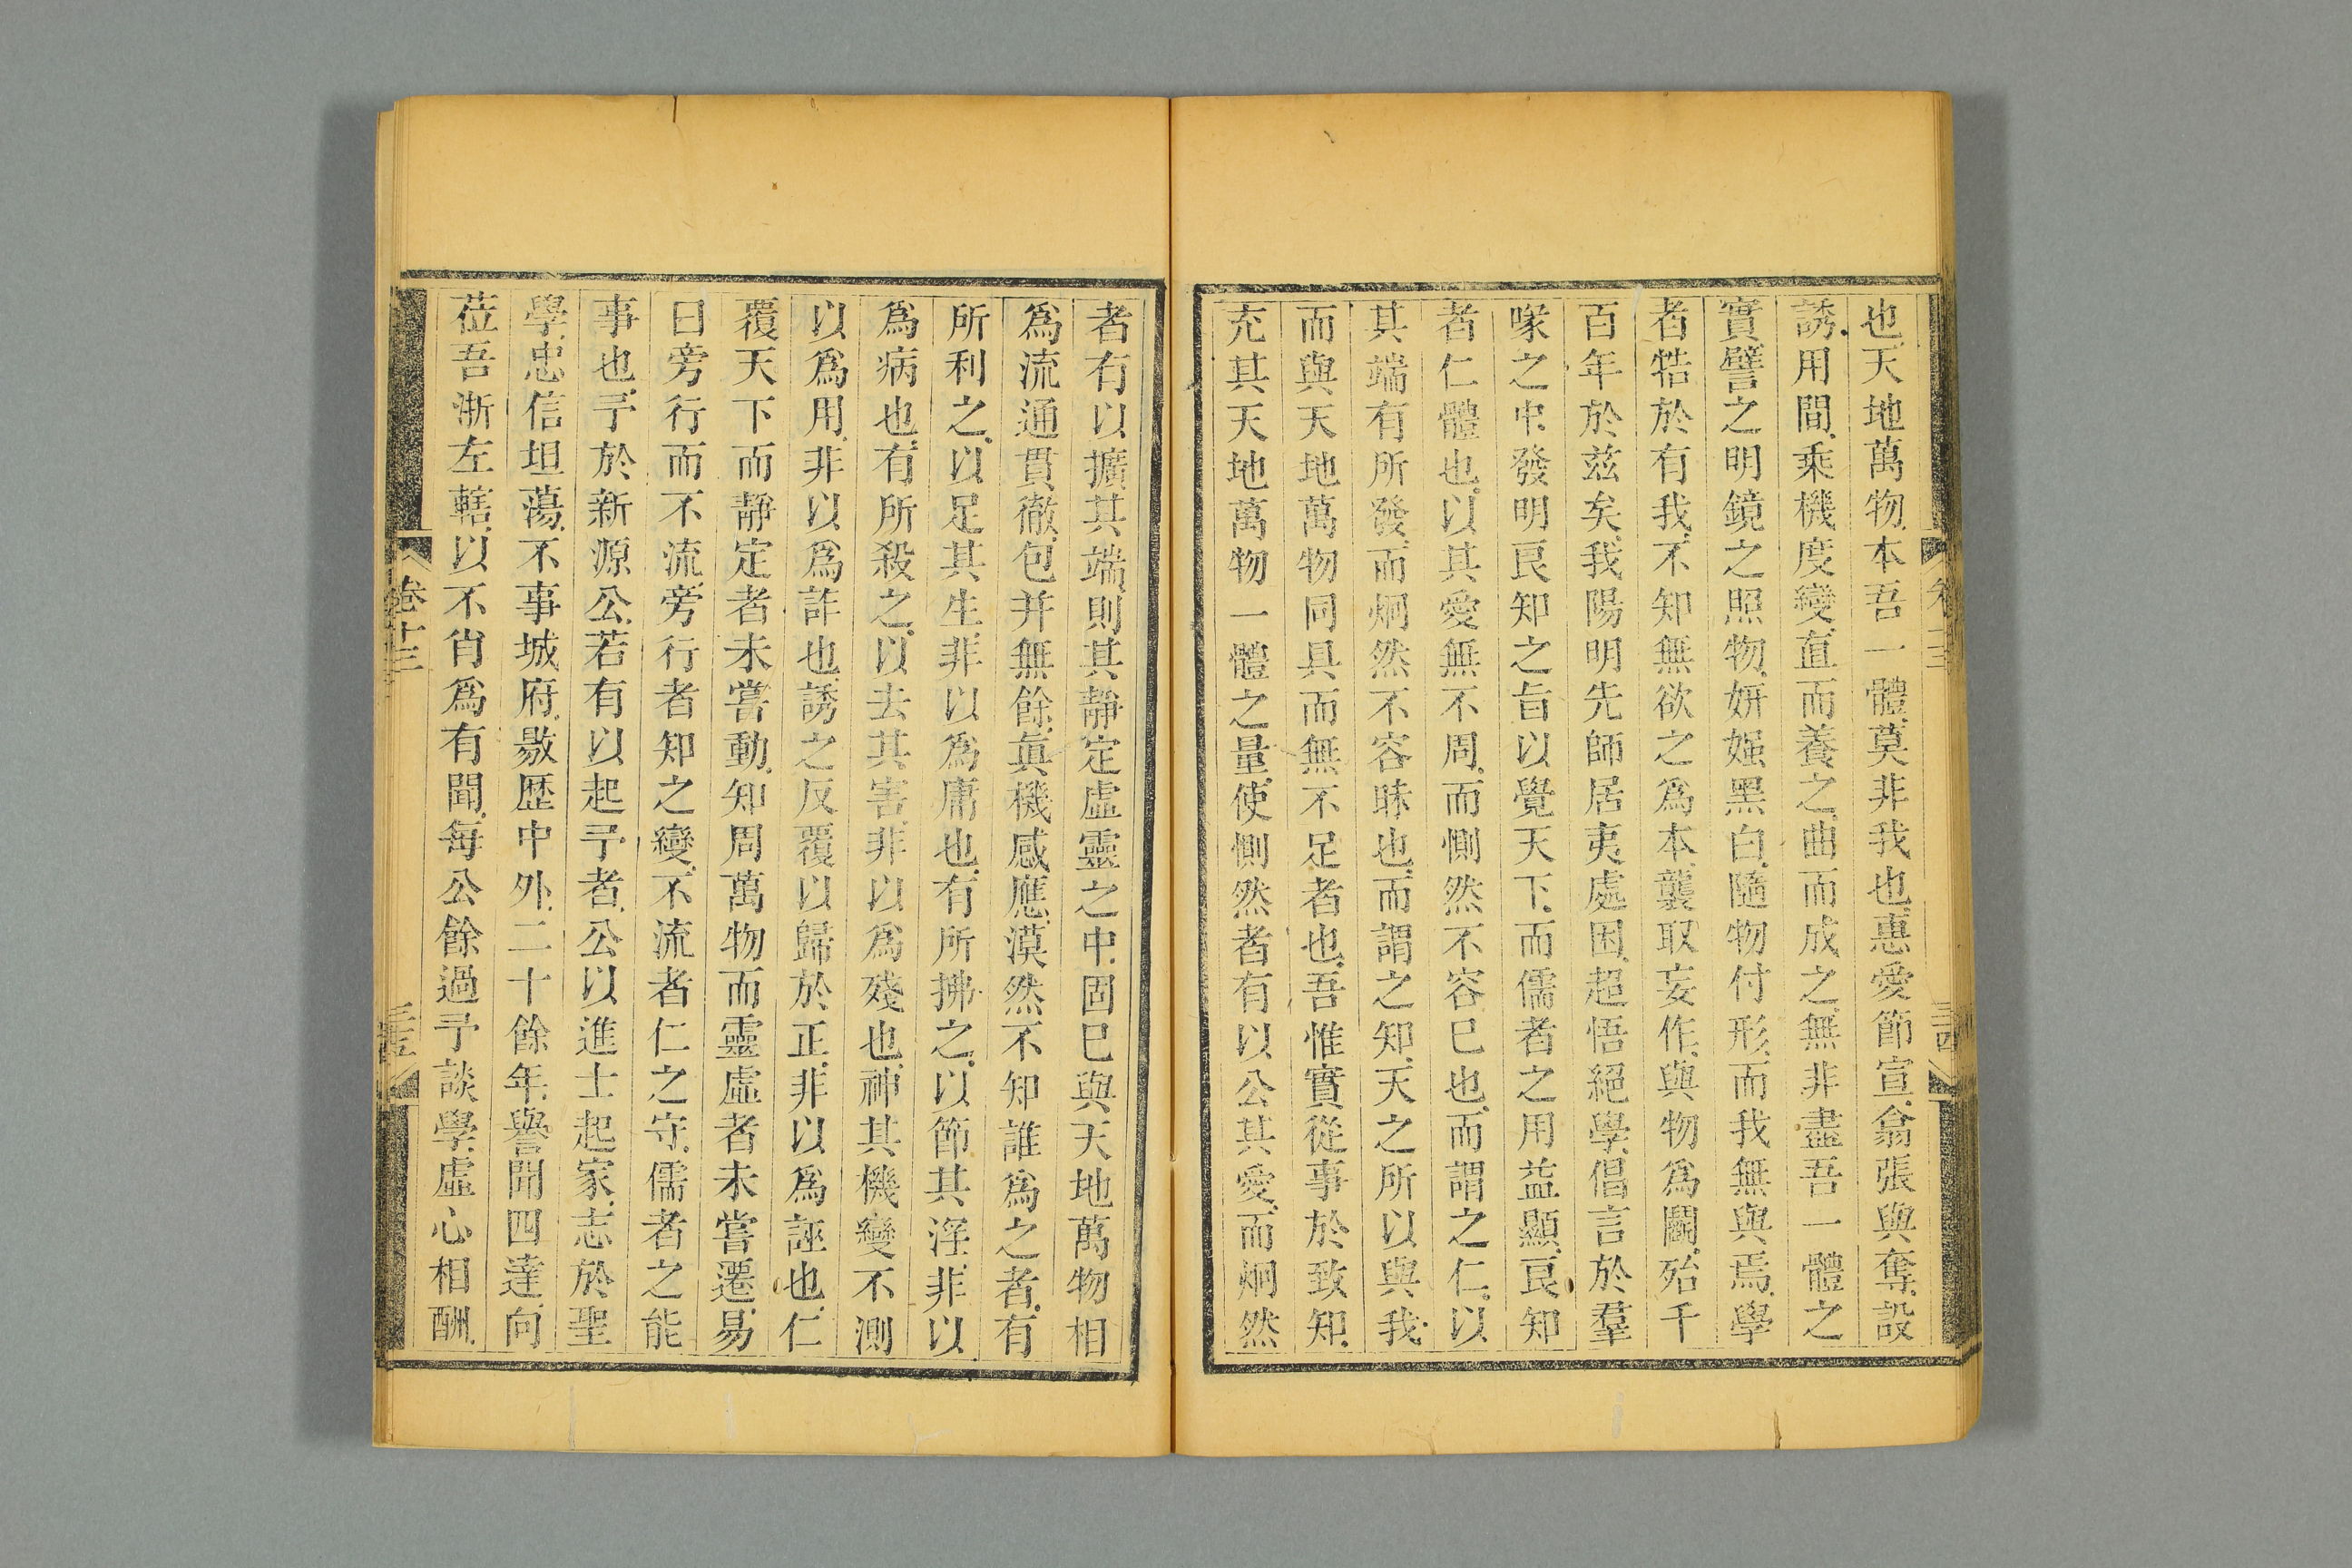 也天地萬物本吾一體莫非我也惠愛節宣翕張與奪設
誘用間乘機度變直而養之曲而成之無非盡吾一體之
實譬之明鏡之照物妍媸黑白隨物付形而我無與焉學
者牿於有我不知無欲之爲本襲取妄作與物爲鬬殆千
百年於茲矣我陽明先師居夷處困超悟絕學倡言於羣
喙之中發明良知之旨以覺天下而儒者之用益顯良知
者仁體也以其愛無不周而惻然不容已也而謂之仁以
其端有所發而炯然不容昧也而謂之知天之所以與我
而與天地萬物同具而無不足者也吾惟實從事於致知
充其天地萬物一體之量使惻然者有以公其愛而炯然
者有以擴其端則其靜定虛靈之中固已與天地萬物相
爲流通貫徹包并無餘眞機感應漠然不知誰爲之者有
所利之以足其生非以爲庸也有所拂之以節其淫非以
爲病也有所殺之以去其害非以爲殘也神其機變不測
以爲用非以爲詐也誘之反覆以歸於正非以爲誣也仁
覆天下而靜定者未嘗動知周萬物而靈虛者未嘗遷易
曰旁行而不流旁行者知之變不流者仁之守儒者之能
事也予於新源公若有以起予者公以進士起家志於聖
學忠信坦蕩不事城府敭歷中外二十餘年譽聞四達向
莅吾浙左轄以不肖爲有聞每公餘過予談學虛心相酬
卷十三